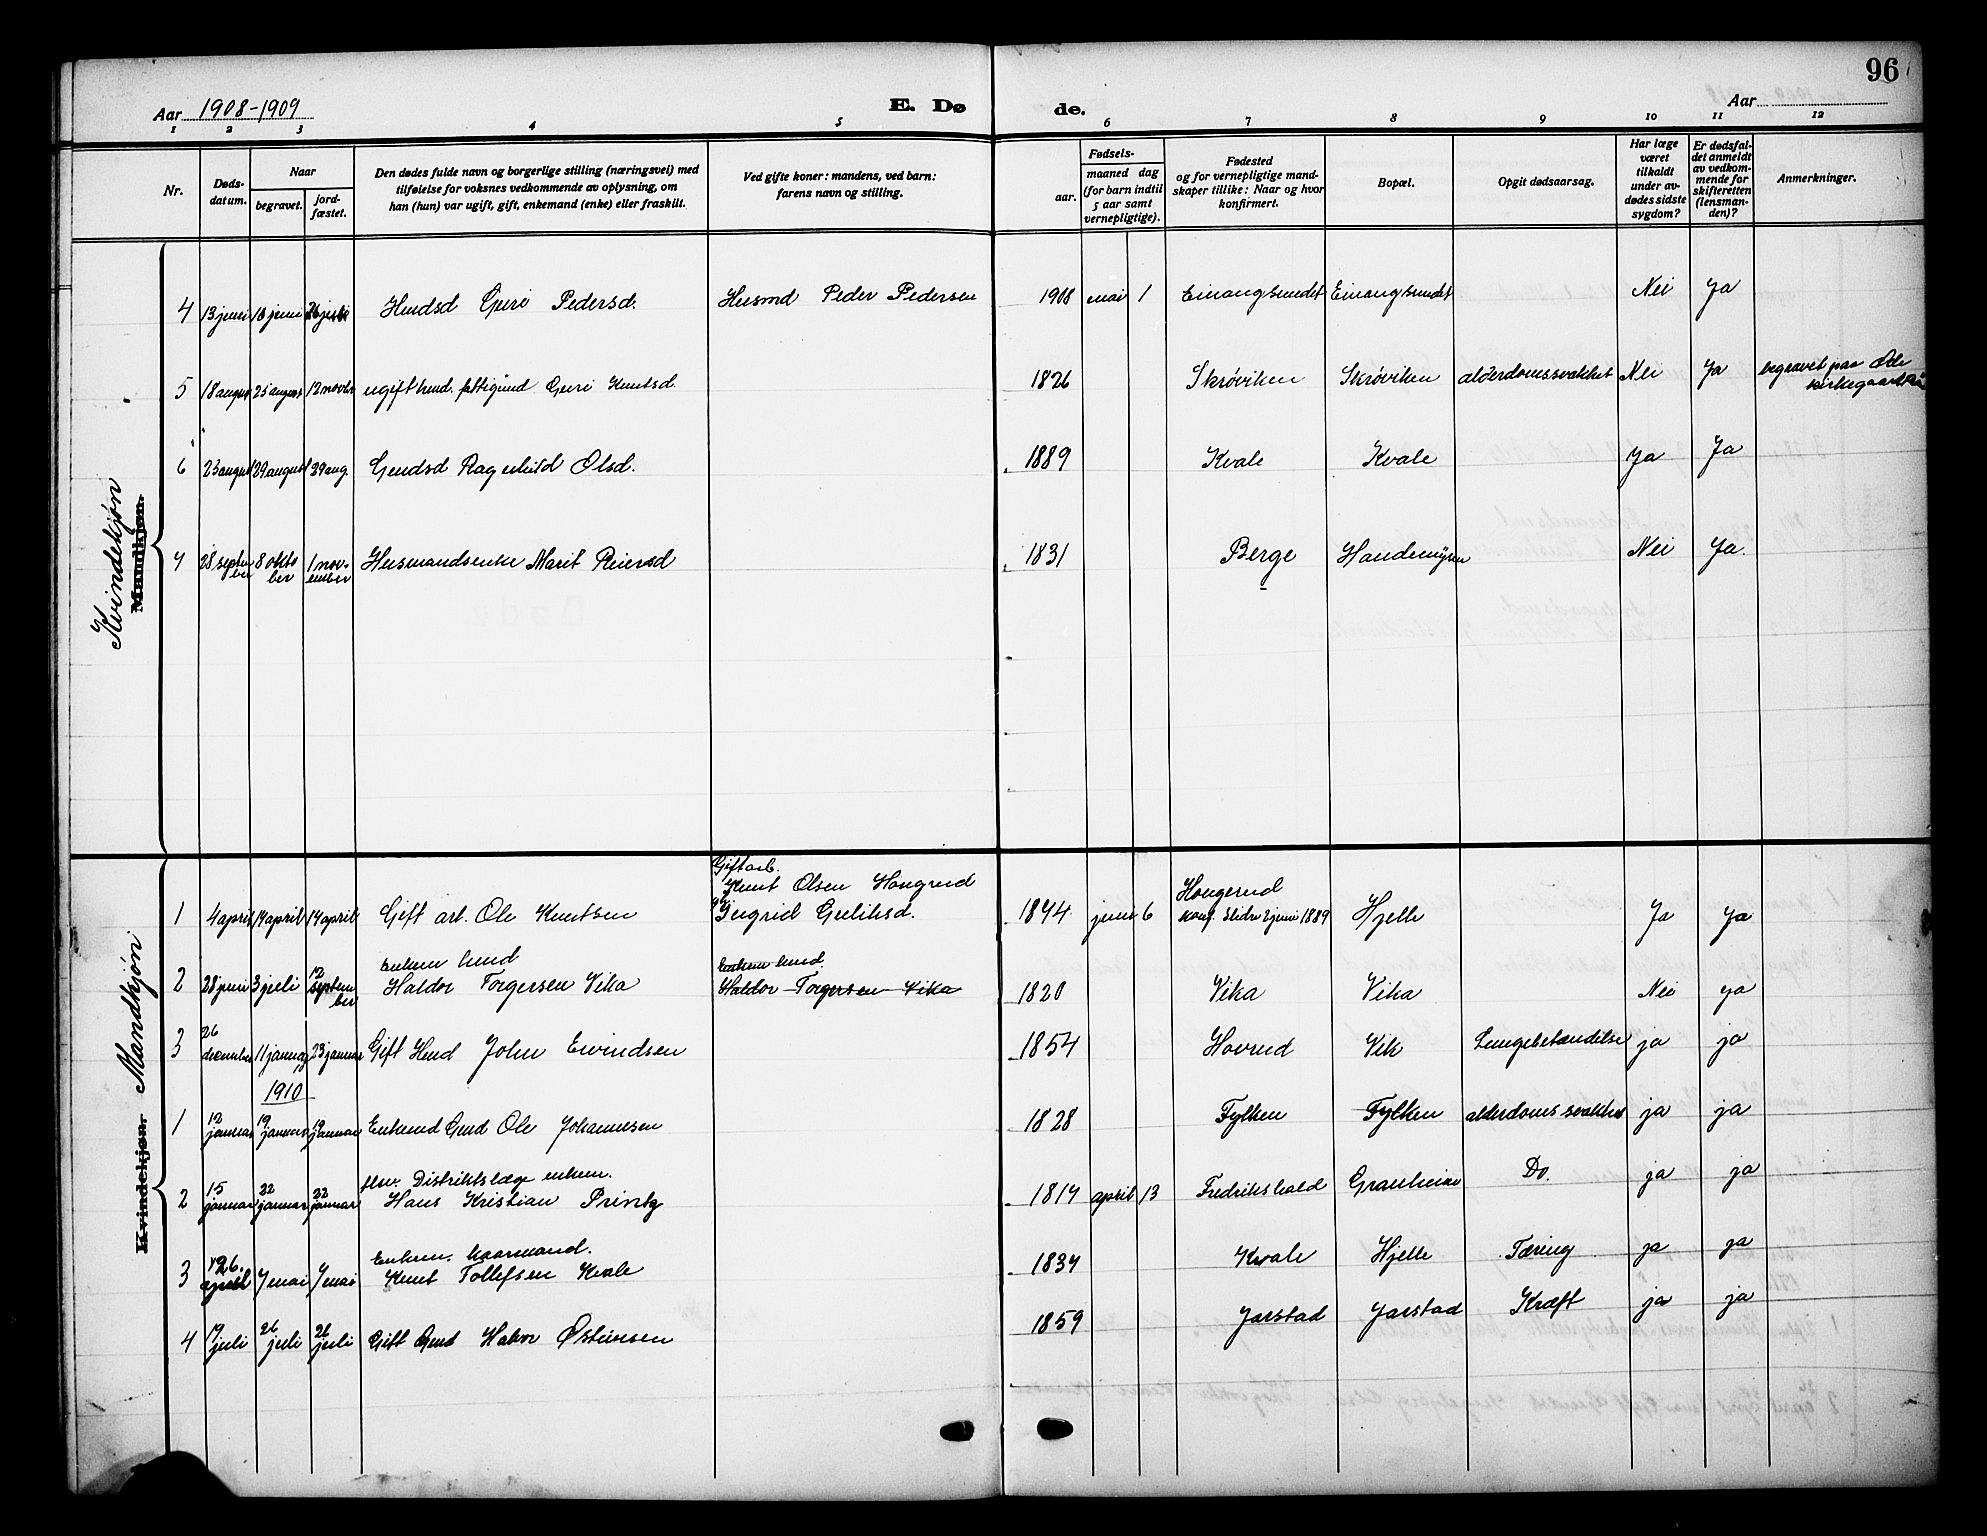 96
Aar 1908-1909
E. Døde.
Aar
1 2 3 4 5 6 7 8 9 10 11 12
Nr.
Døds-
datum.
Naar
begravet.
jord-
fæstet.
Den dødes fulde navn og borgerlige stilling (næringsvei) med
tilføielse for voksnes vedkommende av oplysning, om
han (hun) var ugift, gift, enkemand (enke) eller fraskilt.
Ved gifte koner: mandens, ved barn:
farens navn og stilling.
Fødsels-
aar.
maaned dag
(for barn indtil
5 aar samt
vernepligtige).
Fødested
og for vernepligtige mand-
skaper tillike: Naar og hvor
konfirmert.
Bopæl.
Opgit dødsaarsag.
Har læge
været
tilkaldt
under av-
dødes sidste
sygdom?
Er dødsfal-
det anmeldt
av vedkom-
mende for
skifteretten
(lensman-
den)?
Anmerkninger.
Kvindekjøn
Mandkjøn.
4 13 juni 16 juni Husmd Peder Pedersen 1908 mai 1 Einangsundet Einangsundet Nei Ja
Guri Pedersd.
5 18 august 25 august 12 novbr Guri Knutsd. 1826 Skrøviken Skrøviken alderdomssvakhet Nei Ja begravet paa
6 23 august 29 august 29 aug. Gmdsd Ragnhild Olsd. 1889 Kvale Kvale Ja Ja
7 28 septem
ber 8 okto
ber 1 nov-
ember Husmandsenke Marit Reiersd 1831 Berge Nei Ja
Mandkjøn
Kvindekjøn.
1 4 april 14 april 14 april Gift arb. Ole Knutsen
Gift arb.
Knut Olsen Hougrud
Ingrid Guliksd. 1844 juni 6 Hougerud
konf. Slidre 2 juni 1889 Hjelle Ja Ja
2 28 juni 3 juli 12
septem
ber
Enkem
Haldor Torgersen Vika
Enkem
Haldor Torgersen Vika 1820 Vika Vika Nei Ja
3 26
december 11 januar 23 januar Gift John Eivindsen 1854 Hovrud Vik Lungebetændelse ja ja
1910
1 12
januar 19
januar 19
januar Enkemd Gmd Ole Johannesen 1828 Fylken Fylken alderdomssvakhet ja ja
2 15
januar 22
januar 22
januar
Distriktslæge enkem.
Hans Kristian Printz 1817 april 13 Fredrikshald Granheim Do. ja ja
3 26.
april 7 mai 7 mai
Enkem. kaarmand.
Knut Tollefsen Kvale 1834 Kvale Hjelle Tæring ja ja
4 19
juli 26
juli 26
juli Gift Gmd Halvor Østensen 1859 Jarstad Jarstad Kræft ja ja